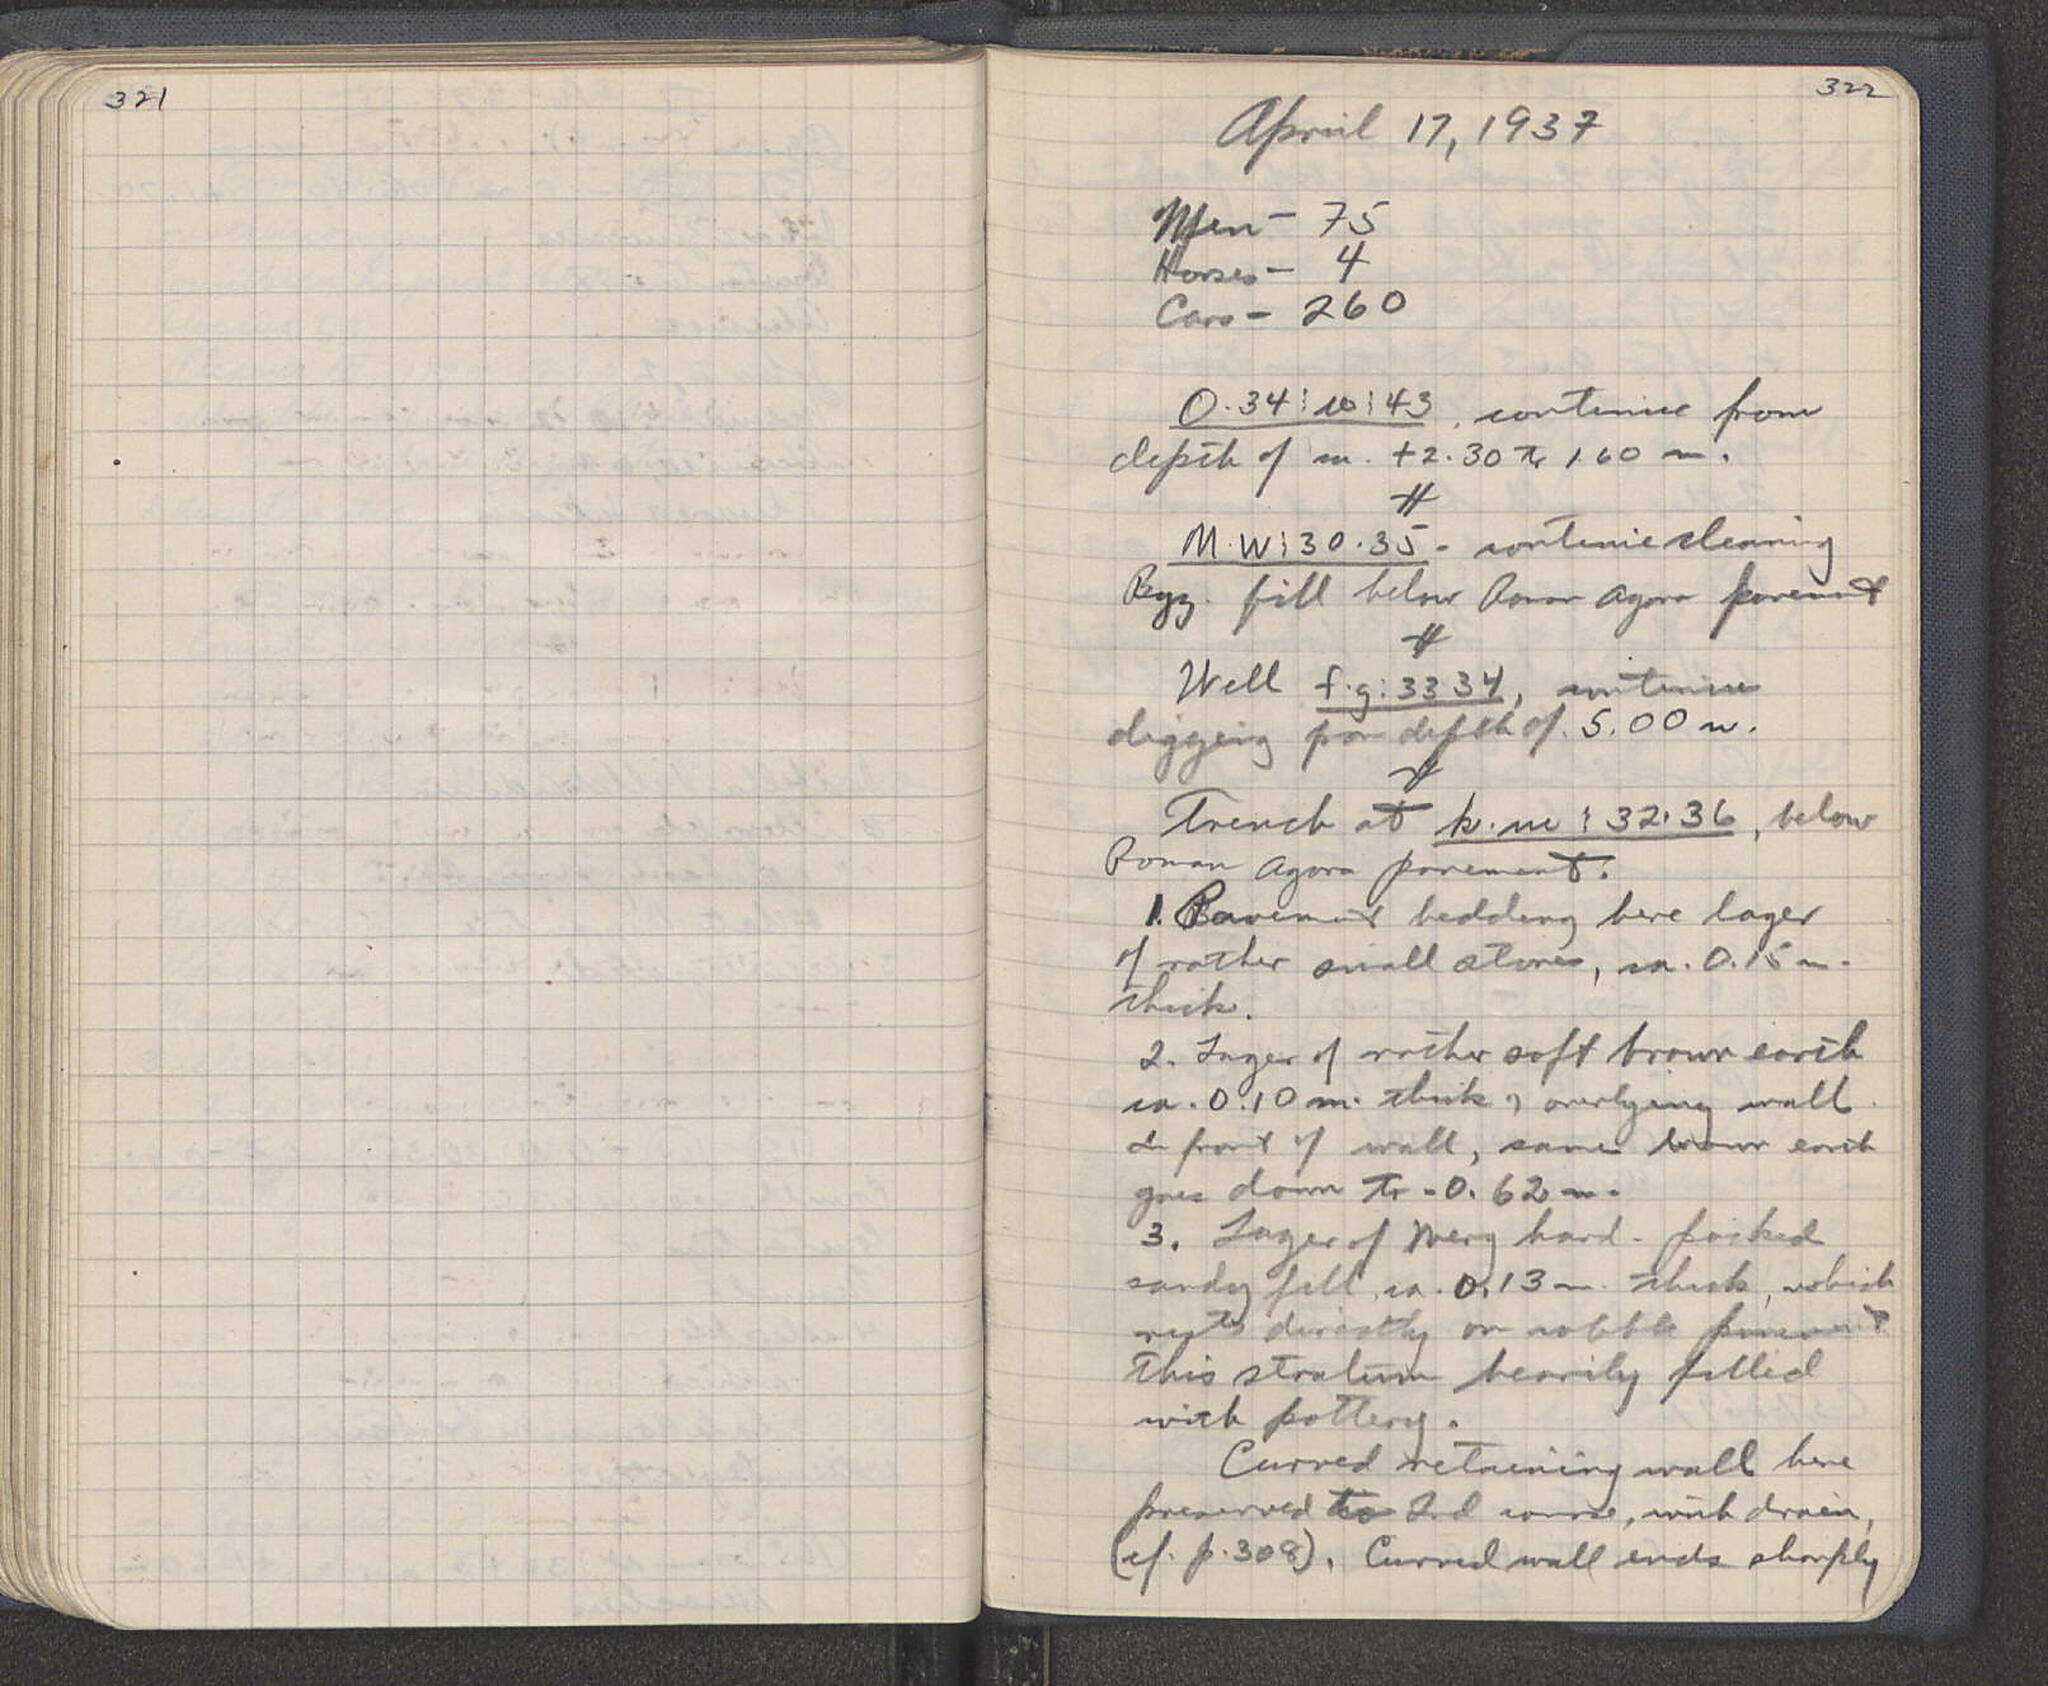 321
322
April 17, 1937
Men - 75
Horses - 4
Cars - 260
O.34:10:43, continue from
depth of m. +2.30 to 1.60 m.
#
M.W:30.35 - continue cleaning
Byz. fill below Roman Agora pavement
#
Well f.g:33 34, continue
digging from depth of 5.00 m.
#
Trench at k.m:32.36, below
Roman Agora pavement.
1. Pavement bedding here layer
of rather small stones, ca. 0.15 m.
thick.
2. Layer of rather soft brown earth
ca. 0.10 m. thick, overlying wall.
In front of wall, same brown earth
goes down to -0.62 m.
3. Layer of very hard-packed
sandy fill, ca. 0.13 m. thick, which
rests directly on cobble pavement
This stratum heavily filled
with pottery.
Curved retaining wall here
preserved to 2nd course, with drain,
(cf. p. 308). Curved wall ends sharply